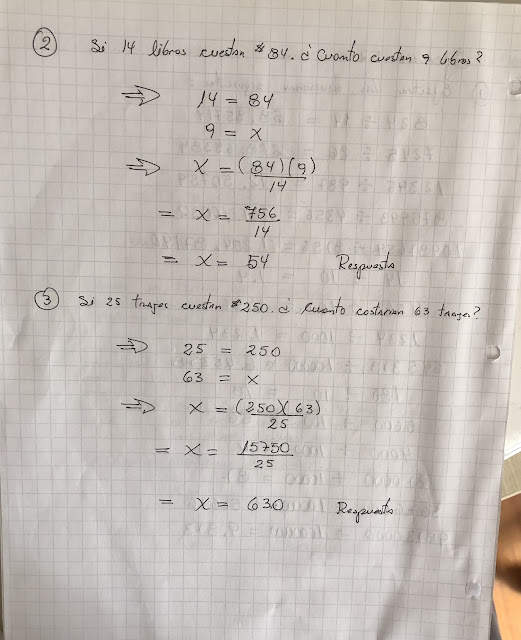 ② Si 14 libros cuestan $84. ¿ Cuanto cuestan 9 libros?
⇒ 14 = 84
9 = x
⇒ X = (84)(9)
14
= X = 756
14
= X = 54 Respuesta
③ Si 25 trajes cuestan $250. ¿ Cuanto costarian 63 trajes?
⇒ 25 = 250
63 = x
⇒ X = (250)(63)
25
= X = 15750
25
= X = 630 Respuesta